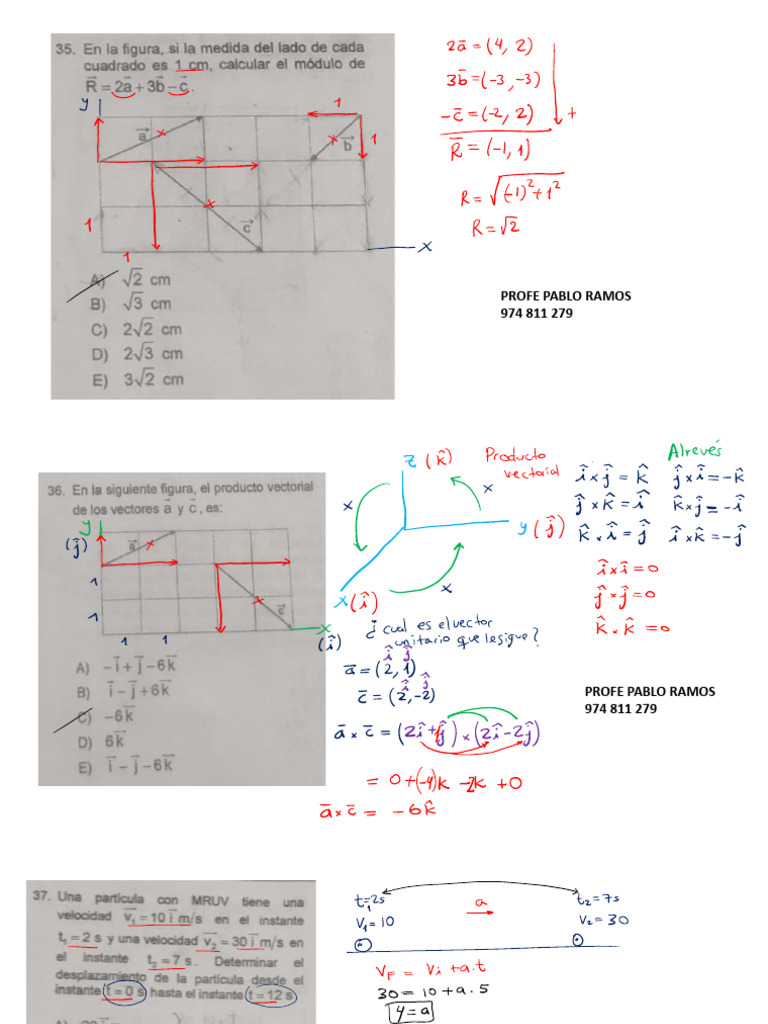 35. En la figura, si la medida del lado de cada
cuadrado es 1 cm, calcular el módulo de
R⃗ = 2a⃗ + 3b⃗ - c⃗.
y
1
a⃗
b⃗
1
c⃗
1
1
x
A) √2 cm
B) √3 cm
C) 2√2 cm
D) 2√3 cm
E) 3√2 cm
2a̅ = (4, 2)
3b̅ = (-3, -3)
-c̅ = (-2, 2) +
R̅ = (-1, 1)
R = √(-1)²+1²
R = √2
PROFE PABLO RAMOS
974 811 279
36. En la siguiente figura, el producto vectorial
de los vectores a⃗ y c⃗, es:
y
(ĵ)
a⃗
1
1
c⃗
1 1
x
(î)
A) -i⃗ + j⃗ - 6k⃗
B) i⃗ - j⃗ + 6k⃗
C) -6k⃗
D) 6k⃗
E) i⃗ - j⃗ - 6k⃗
z (k̂)
x
x
y (ĵ)
x
x (î)
Producto
vectorial
î x ĵ = k̂
ĵ x k̂ = î
k̂ x î = ĵ
Alrevés
ĵ x î = -k̂
k̂ x ĵ = -î
î x k̂ = -ĵ
î x î = 0
ĵ x ĵ = 0
k̂ x k̂ = 0
¿cual es el vector
unitario que le sigue?
î ĵ
a̅ = (2, 1)
î ĵ
c̅ = (2, -2)
a̅ x c̅ = (2î+ĵ) x (2î-2ĵ)
= 0+(-4)k -2k +0
a̅ x c̅ = -6k̂
PROFE PABLO RAMOS
974 811 279
37. Una partícula con MRUV tiene una
velocidad v⃗₁ = 10 i⃗ m/s en el instante
t₁ = 2 s y una velocidad v⃗₂ = 30 i⃗ m/s en
el instante t₂ = 7 s. Determinar el
desplazamiento de la partícula desde el
instante t = 0 s hasta el instante t = 12 s
t₁=2s
V₁=10
a
t₂=7s
V₂=30
VF = Vi + a.t
30 = 10 + a.5
4 = a